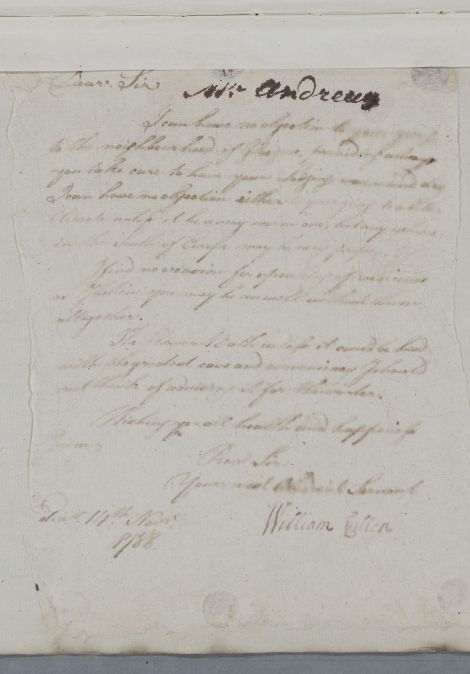 Dear Sir
Mr. Andrews
I can have no objection to your going
to the neighbourhood of provided always
you take care to have your lodging warm and dry
I can have no objection either to your going to a
Climate unless it be a very warm one, but any where
in the South of Europe may be very
I find no occasion for a of medicines
as I believe you may be as well without them
altogether.
The Steam Bath unless it could be had
with care and I should
not think of advising it for this winter.
Wishing you all health and happiness
I am
Dear Sir
Your most Obedient Servant
William Cullen
Edinr. 14th Novr.
1788